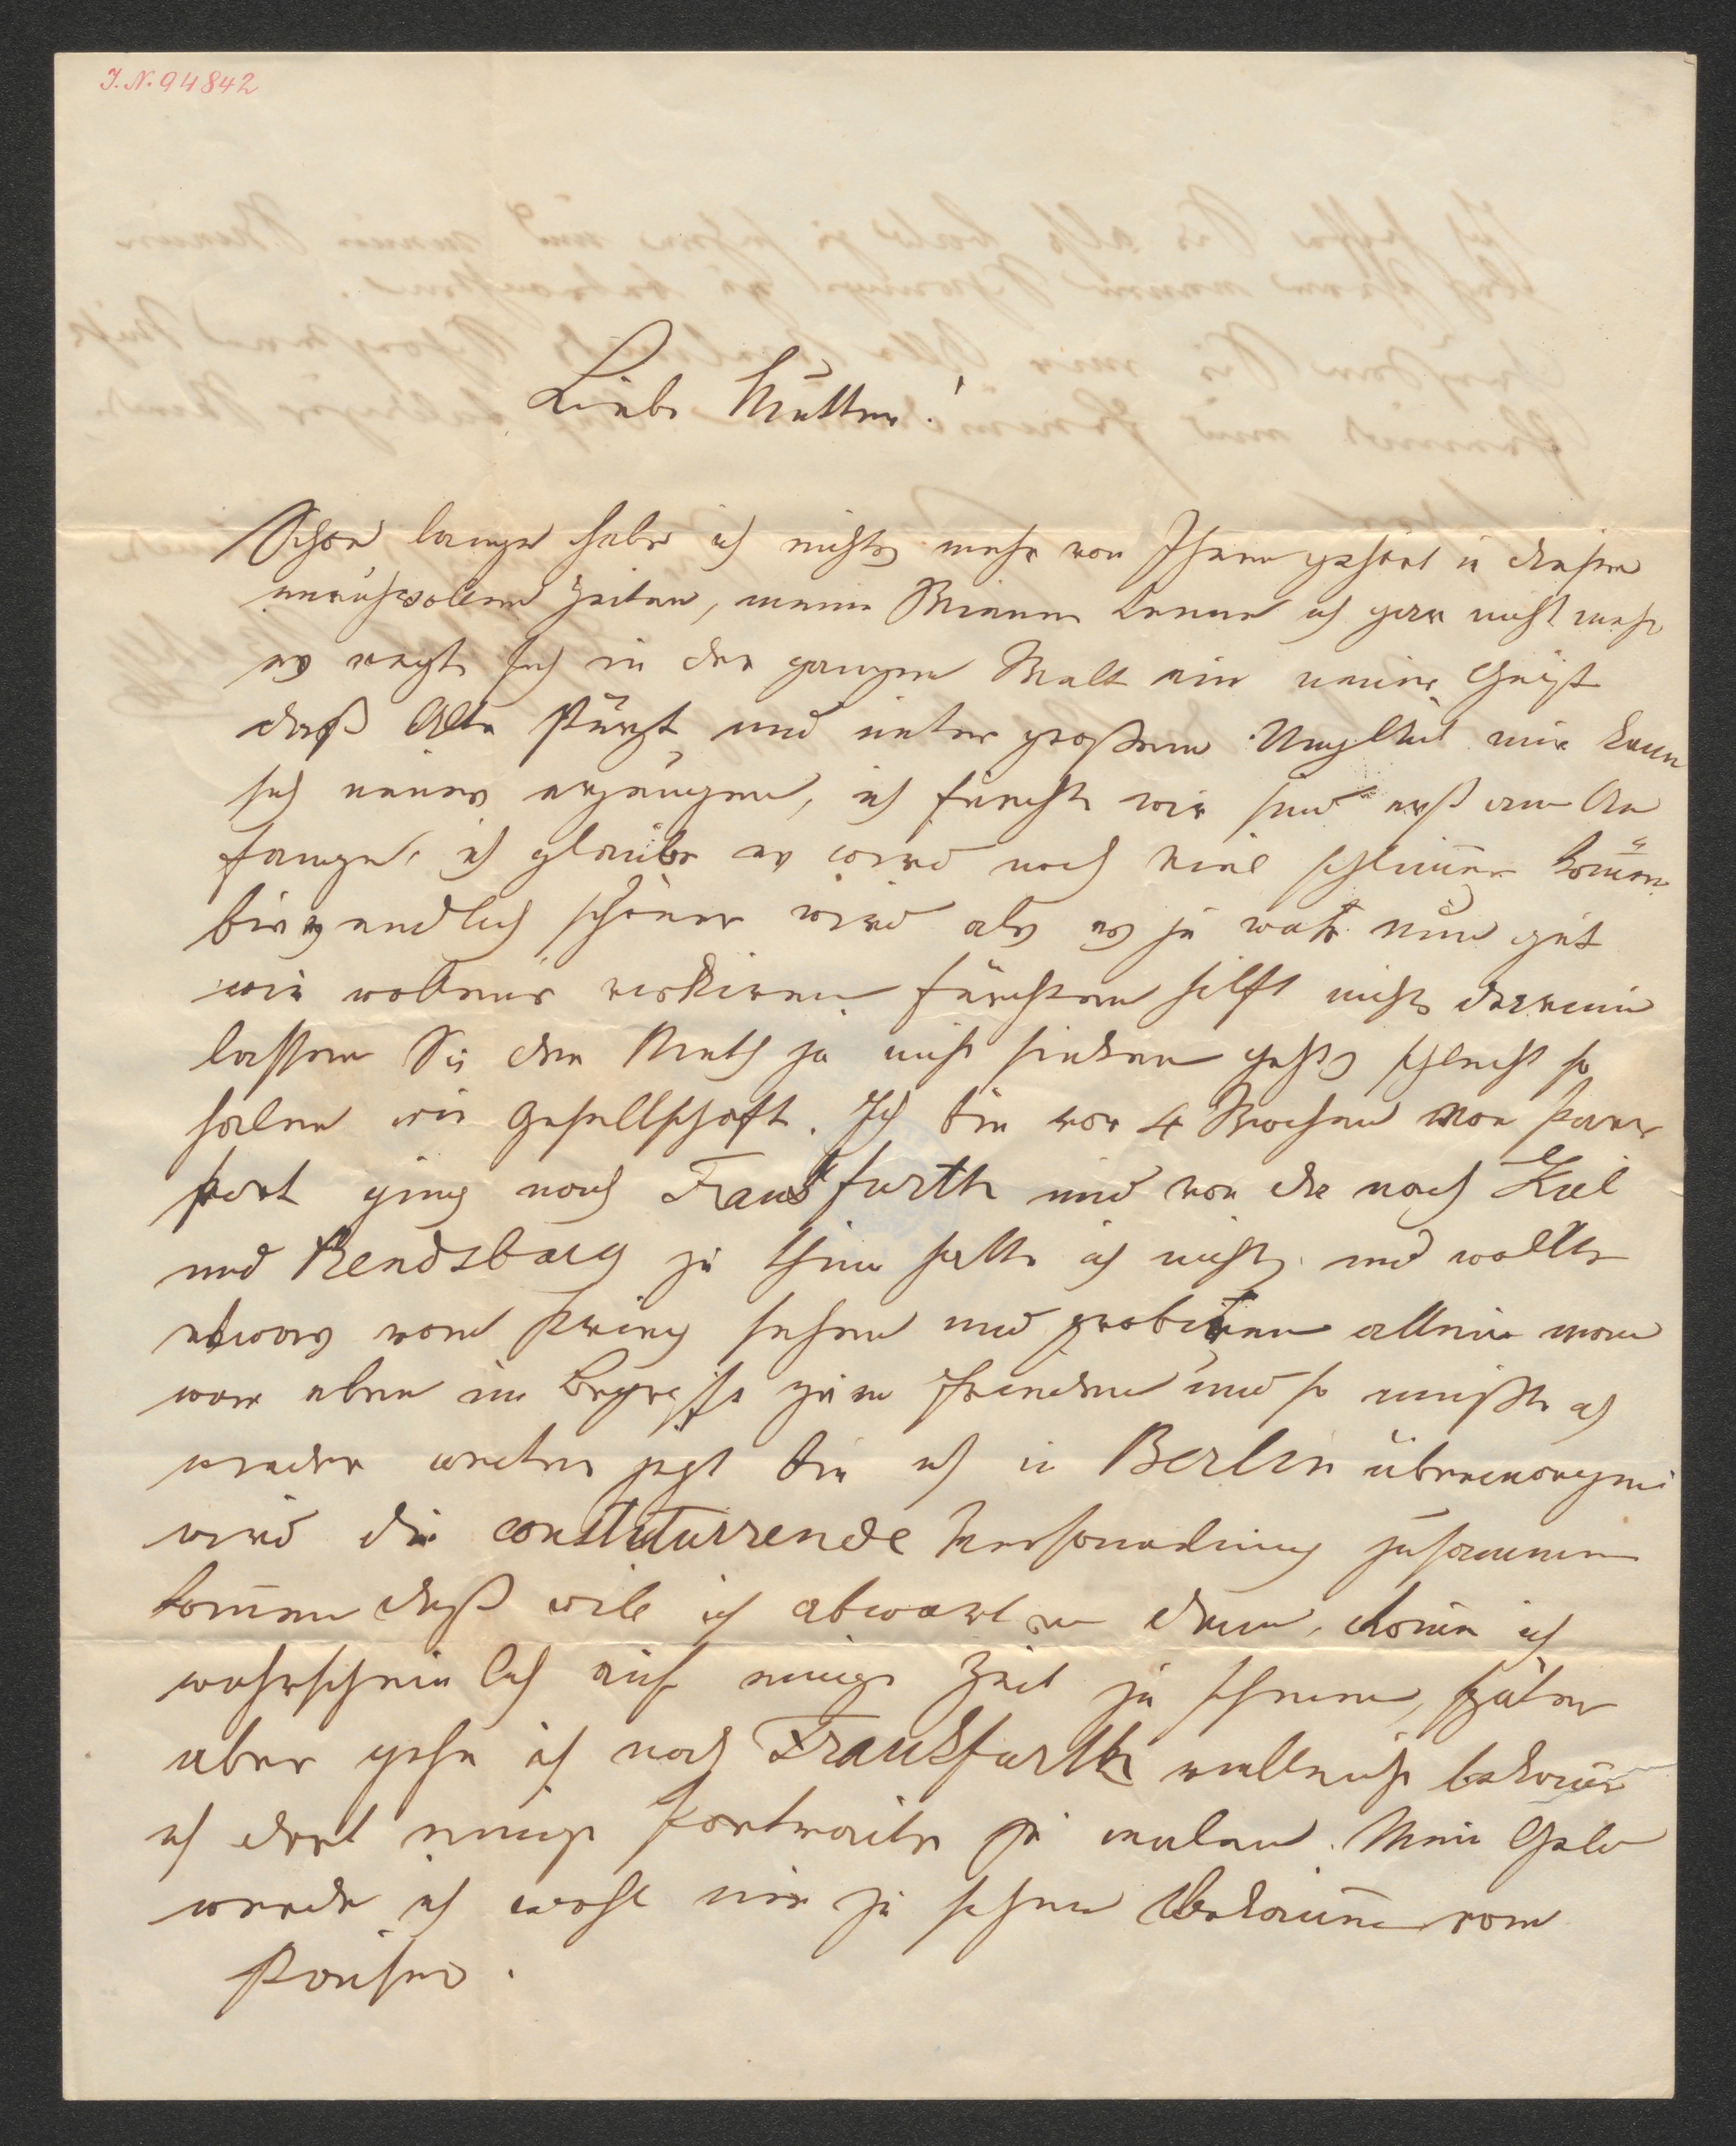 I.N. 94842
Liebe Mutter!
Schon lange habe ich nichts mehr von Ihnen gehört in diesen
unruhvollen Zeiten, meine Wiener kenne ich gar nicht mehr
es regt sich in der ganzen Welt ein neuer Geist
daß Alte stürzt und unter großem Unglück nur kann
sich neues erzeugen, ich fürchte wir sind erst am An
fange, ich glaube es wird noch viel schlimer komen
bis es endlich schöner wird als es je war. nun gut
wir wollens riskiren fürchten hilft nichts darum
lassen Sie den Muth ja nicht sinken gehts schlecht so
haben wir Gesellschaft. Ich bin vor 4 Wochen von Paris
fort ging nach Frankfurth und von da nach Kiel
und Rendsburg zu thun hatte ich nichts und wollte
etwas vom Krieg sehen und probiren allein man
war eben im Begriffe zum Frieden und so mußte ich
wieder weiter jezt bin ich in Berlin übermorgen
wird die constituirende Versammlung zusammen
komen daß will ich abwarten dann kome ich
wahrscheinlich auf einige Zeit zu Ihnen, später
aber gehe ich nach Frankfurth vielleicht bekome
ich dort einige Portraite zu malen. Mein Geld
werde ich wohl nie zu sehen bekomen vom